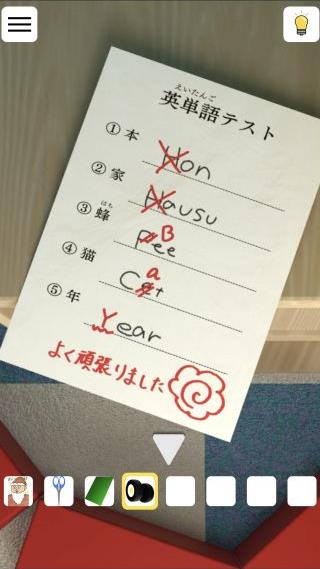 えいたんご
英単語テスト
① 本 Hon
② 家 Hausu
はち
③ 蜂 B ee
④ 猫 C a t
⑤ 年 Year
よく頑張りました